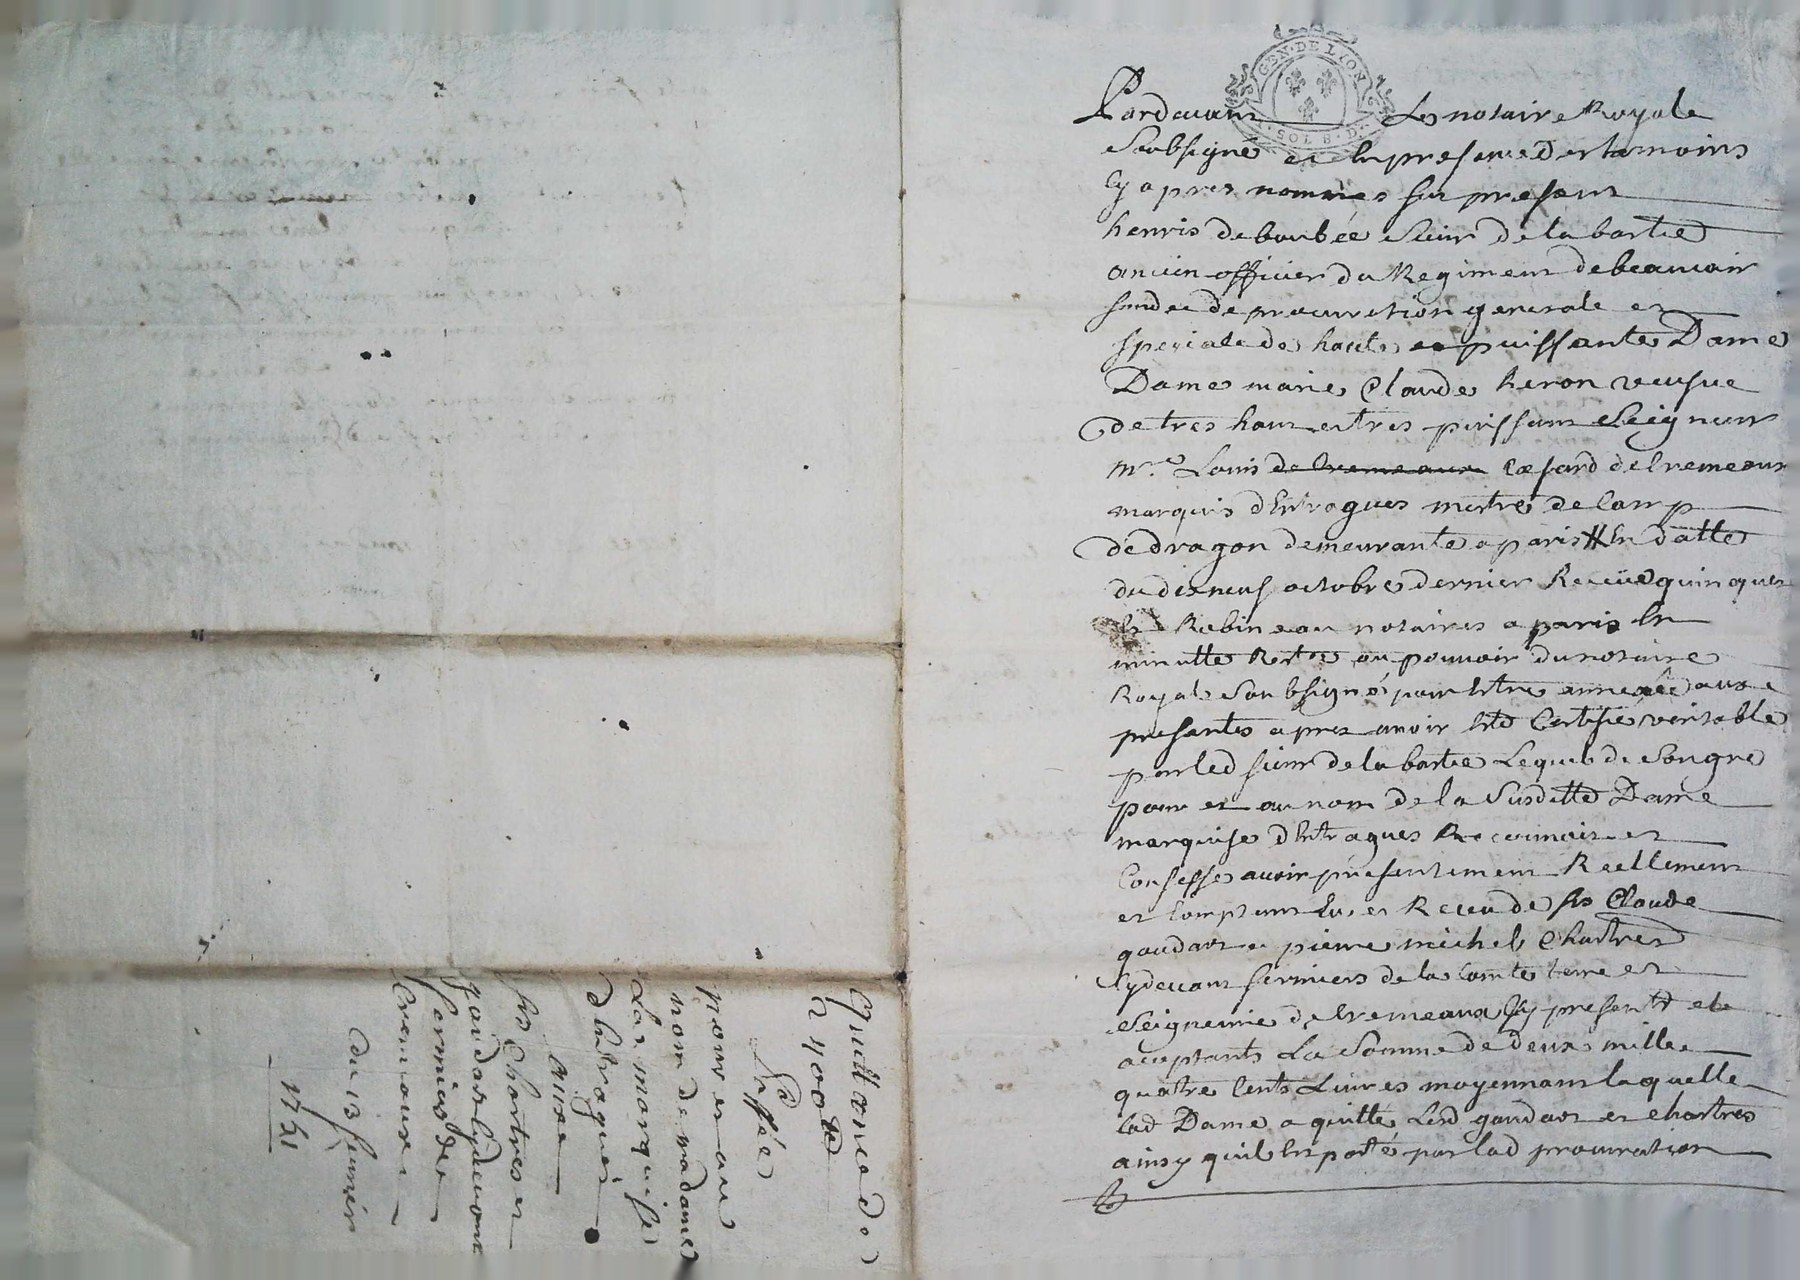 GEN. DE LION
SOLS. D.
Pardevant Le notaire Royale
Soubsigné et En presence des temoins
Cy apres nommes fut present
henris de boubée sieur de la bartie
ancien officier du Regiment de beauvoir
fondée de procuration generale et
speciale de haute et puissante Dame
Dame marie Claude heron veusve
de tres haut et tres puissant Seigneur
mre Louis de Cremeaux Cæsard de Cremeaux
marquis dEntragues mestre de Camp
de dragon demeurante a paris En datte
du dixneuf octobre dernier Receüe
Robineau notaires a paris En
minutte au pouvoir du notaire
Royale Soubsigné pour Estre annexée aux
presantes apres avoir Eté Certifié veritable
par led sieur de la bartie Lequel de Son gré
pour et au nom de la Susditte Dame
marquise dEntragues Reconnoit et
Confesse avoir presentement Reellement
et Comptant Eu et Receu de srs Claude
gaudart et pierre michel Chartres
Cydevant fermiers de la Comté terre et
Seigneurie de Cremeaux Cy present et
aceptants La Somme de deux mille
quatre Cents Livres moyennant laquelle
lad Dame a quitte Lesd gaudart et Chartres
ainsy quil Est porté par lad procuration
Quittance de
2400 tt
passée
pour et au
nom de madame
La marquise
dEntragues
aux
srs Chartres et
gaudart Cydevant
fermiers de
Cremeaux
du 13 janvier
1751